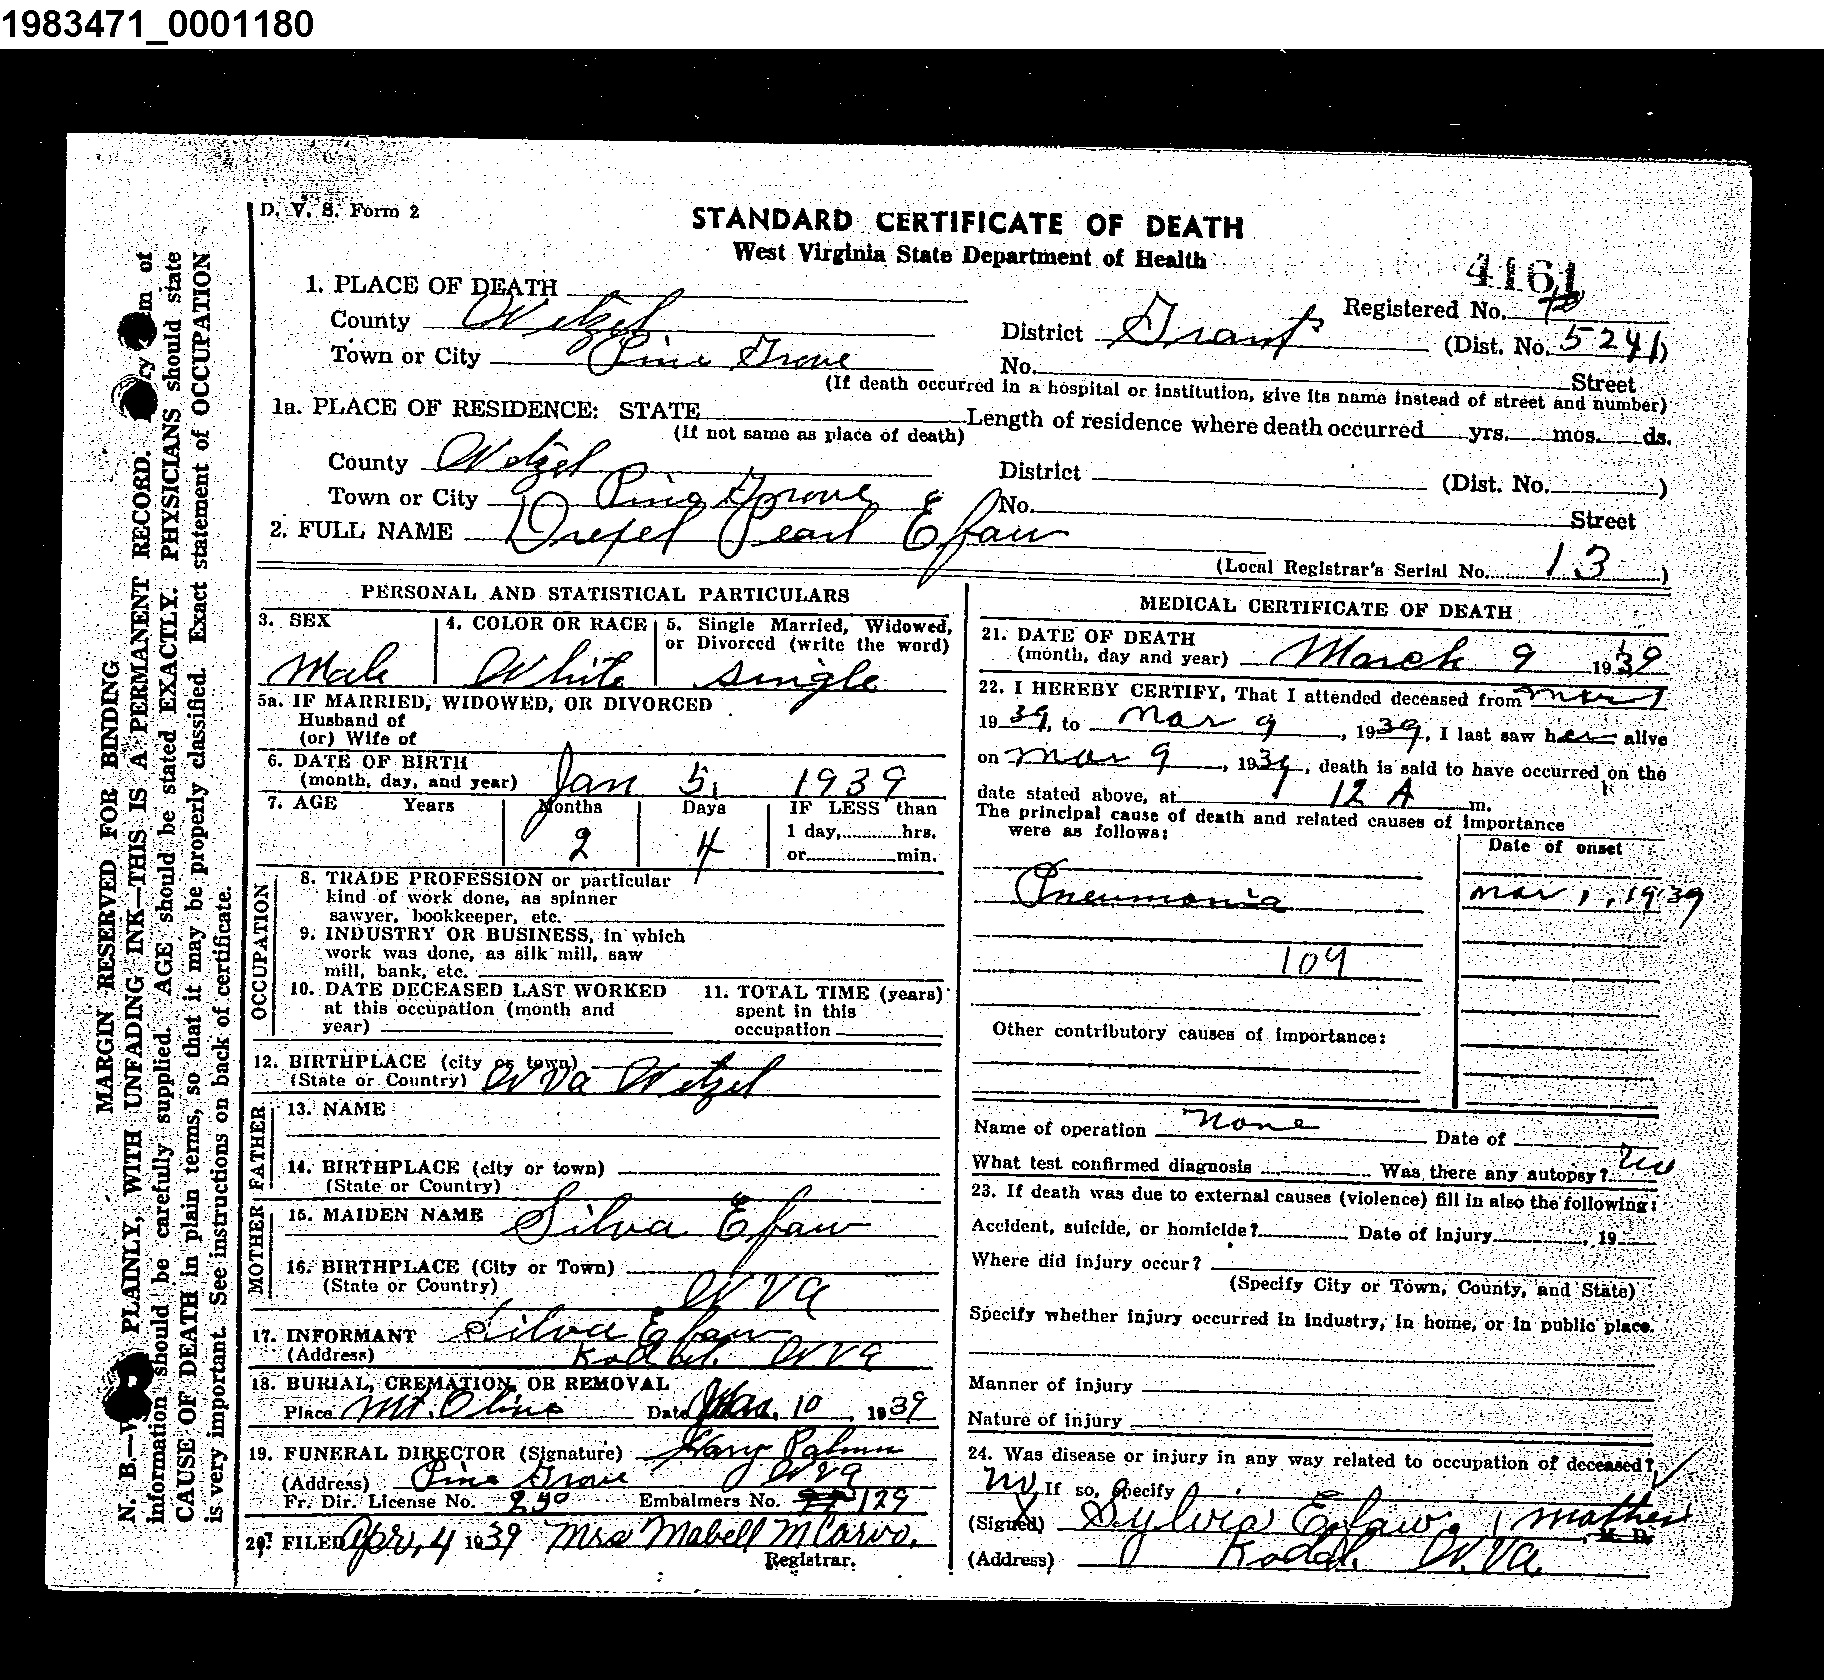 1983471_0001180
D. V. S. Form 2
STANDARD CERTIFICATE OF DEATH
West Virginia State Department of Health
4161
1. PLACE OF DEATH
Registered No.
County Wetzel
District Grant (Dist. No. 5241)
Town or City Pine Grove
No. Street
(If death occurred in a hospital or institution, give its name instead of street and number)
1a. PLACE OF RESIDENCE: STATE
(If not same as place of death)
Length of residence where death occurred yrs. mos. ds.
County Wetzel
District (Dist. No. )
Town or City Pine Grove
No. Street
2. FULL NAME Drexel Pearl Efaw
(Local Registrar's Serial No. 13 )
PERSONAL AND STATISTICAL PARTICULARS
3. SEX
Male
4. COLOR OR RACE
White
5. Single Married, Widowed,
or Divorced (write the word)
Single
5a. IF MARRIED, WIDOWED, OR DIVORCED
Husband of
(or) Wife of
6. DATE OF BIRTH
(month, day, and year) Jan 5, 1939
7. AGE Years Months Days IF LESS than
1 day, hrs.
2 4 or min.
OCCUPATION
8. TRADE PROFESSION or particular
kind of work done, as spinner
sawyer, bookkeeper, etc.
9. INDUSTRY OR BUSINESS, in which
work was done, as silk mill, saw
mill, bank, etc.
10. DATE DECEASED LAST WORKED
at this occupation (month and
year)
11. TOTAL TIME (years)
spent in this
occupation
12. BIRTHPLACE (city or town)
(State or Country) W Va Wetzel
FATHER
13. NAME
14. BIRTHPLACE (city or town)
(State or Country)
MOTHER
15. MAIDEN NAME Silva Efaw
16. BIRTHPLACE (City or Town)
(State or Country) W Va
17. INFORMANT Silva Efaw
(Address) Kodol. W Va
18. BURIAL, CREMATION, OR REMOVAL
Place Mt. Olive Date Mar. 10 1939
19. FUNERAL DIRECTOR (Signature) Harry Palmer
(Address) Pine Grove W Va
Fr. Dir. License No. 290 Embalmers No. 129
20. FILED Apr. 4 1939 Mrs Mabell
Registrar.
MEDICAL CERTIFICATE OF DEATH
21. DATE OF DEATH
(month, day and year) March 9 1939
22. I HEREBY CERTIFY, That I attended deceased from Mar 1
1939, to Mar 9, 1939, I last saw her alive
on Mar 9, 1939, death is said to have occurred on the
date stated above, at 12 A m.
The principal cause of death and related causes of importance
were as follows:
Date of onset
Pneumonia Mar 1, 1939
109
Other contributory causes of importance:
Name of operation None Date of
What test confirmed diagnosis Was there any autopsy? No
23. If death was due to external causes (violence) fill in also the following:
Accident, suicide, or homicide? Date of injury , 19
Where did injury occur?
(Specify City or Town, County, and State)
Specify whether injury occurred in industry, in home, or in public place.
Manner of injury
Nature of injury
24. Was disease or injury in any way related to occupation of deceased?
No If so, specify
(Signed) Sylvia Efaw, mother M. D.
(Address) Kodol. W. Va.
MARGIN RESERVED FOR BINDING
N. B.—W PLAINLY, WITH UNFADING INK—THIS IS A PERMANENT RECORD.
information should be carefully supplied. AGE should be stated EXACTLY. PHYSICIANS should state
CAUSE OF DEATH in plain terms, so that it may be properly classified. Exact statement of OCCUPATION
is very important. See instructions on back of certificate.